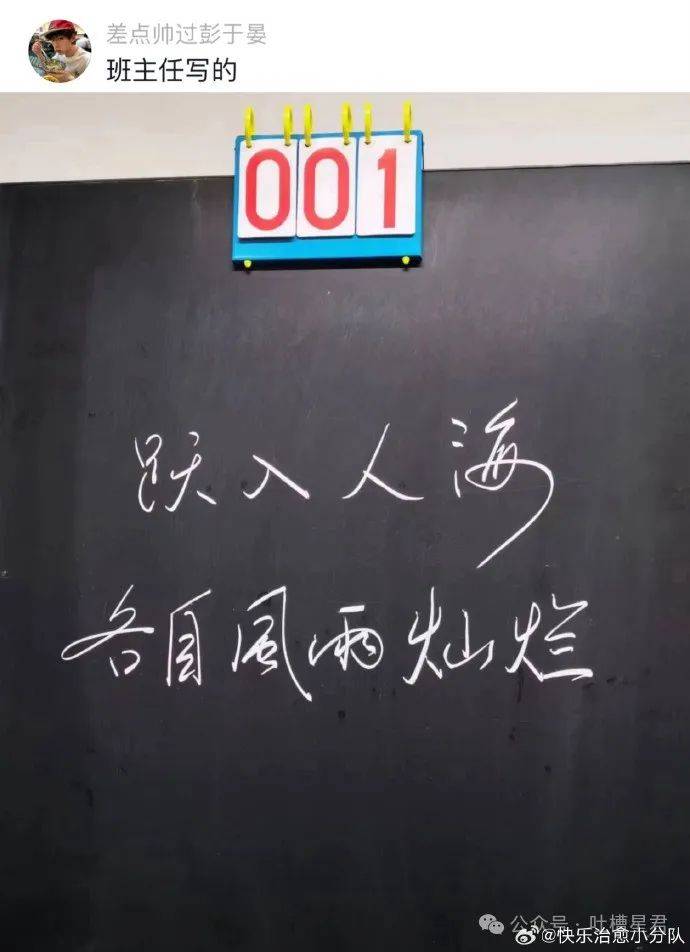 差点帅过彭于晏
班主任写的
001
跃入人海
各自風雨灿烂
公众号·吐槽星君
@快乐治愈小分队